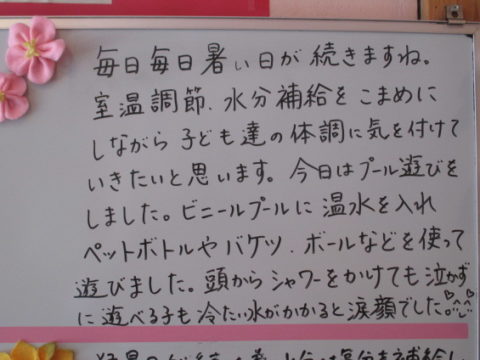 毎日毎日暑い日が続きますね。
室温調節、水分補給をこまめに
しながら子ども達の体調に気を付けて
いきたいと思います。今日はプール遊びを
しました。ビニールプールに温水を入れ
ペットボトルやバケツ、ボールなどを使って
遊びました。頭からシャワーをかけても泣かず
に遊べる子も冷たい水がかかると涙顔でした。